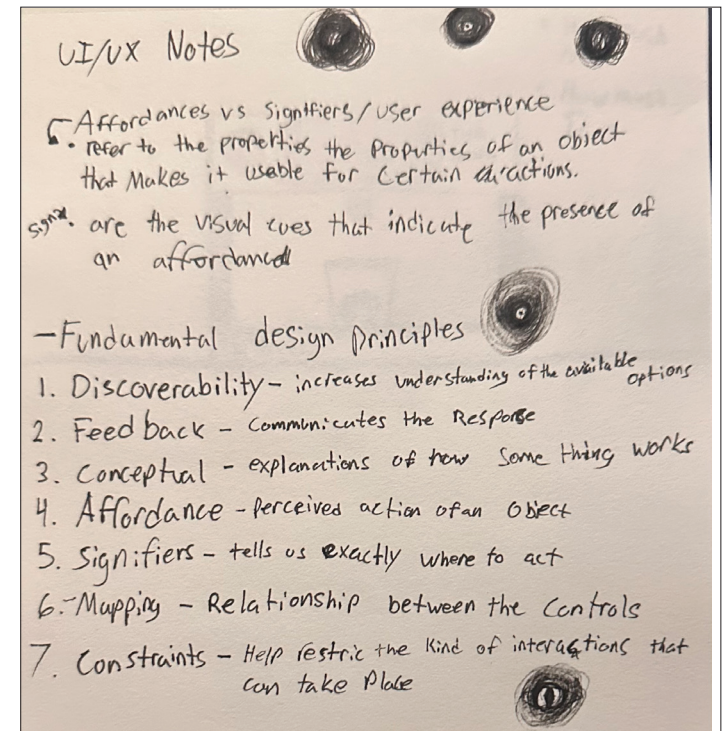 UI/UX Notes
Affordances vs Signifiers/user experience
• refer to the properties the Properties of an object
that Makes it usable for Certain actions.
• are the visual cues that indicate the presence of
an affordance
- Fundamental design principles
1. Discoverability - increases understanding of the available options
2. Feedback - Communicates the Response
3. Conceptual - explanations of how Some thing works
4. Affordance - Perceived action of an Object
5. Signifiers - tells us exactly where to act
6. - Mapping - Relationship between the Controls
7. Constraints - Help restric the Kind of interactions that
can take Place